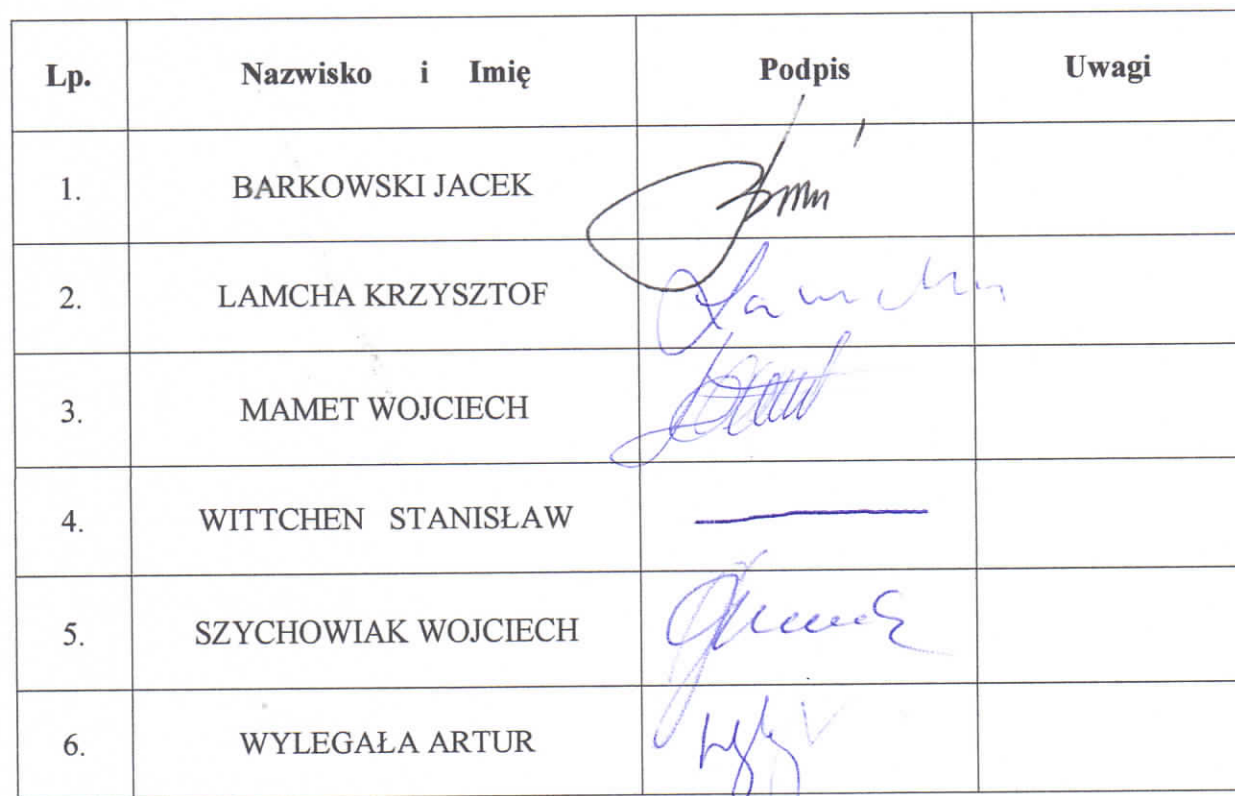 Lp. Nazwisko i Imię Podpis Uwagi
1. BARKOWSKI JACEK
2. LAMCHA KRZYSZTOF Lamcha
3. MAMET WOJCIECH
4. WITTCHEN STANISŁAW
5. SZYCHOWIAK WOJCIECH
6. WYLEGAŁA ARTUR